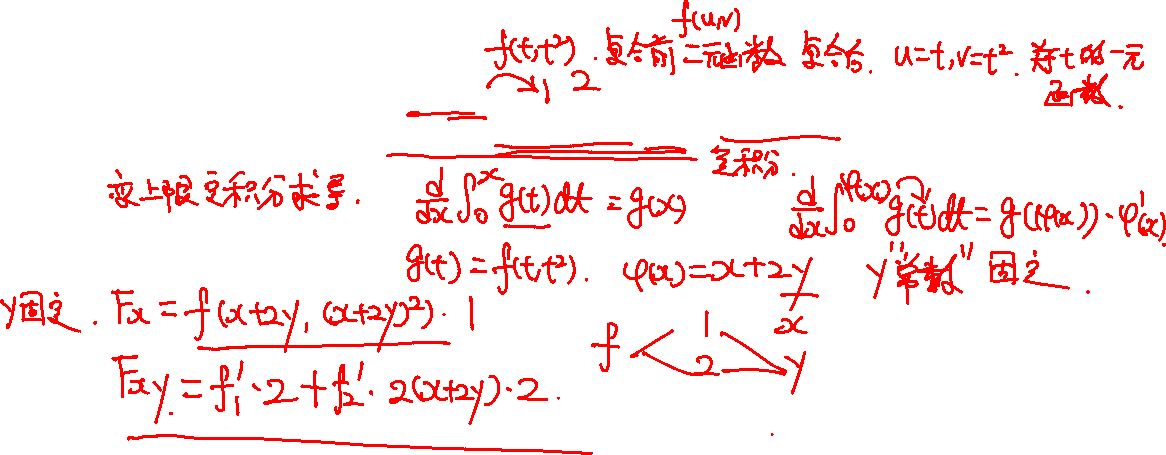 f(u,v)
f(t,t²). 复合前二元函数 复合后. u=t, v=t². 关于t的一元
1 2
函数.
定积分.
变上限定积分求导. d/dx ∫₀ˣ g(t)dt = g(x) d/dx ∫₀^φ(x) g(t)dt = g(φ(x))·φ'(x)
g(t) = f(t,t²). φ(x)=x+2y y"常数" 固定.
x
y固定. Fx = f(x+2y, (x+2y)²)·1
f 1 2 y
Fxy = f₁'·2 + f₂'·2(x+2y)·2.